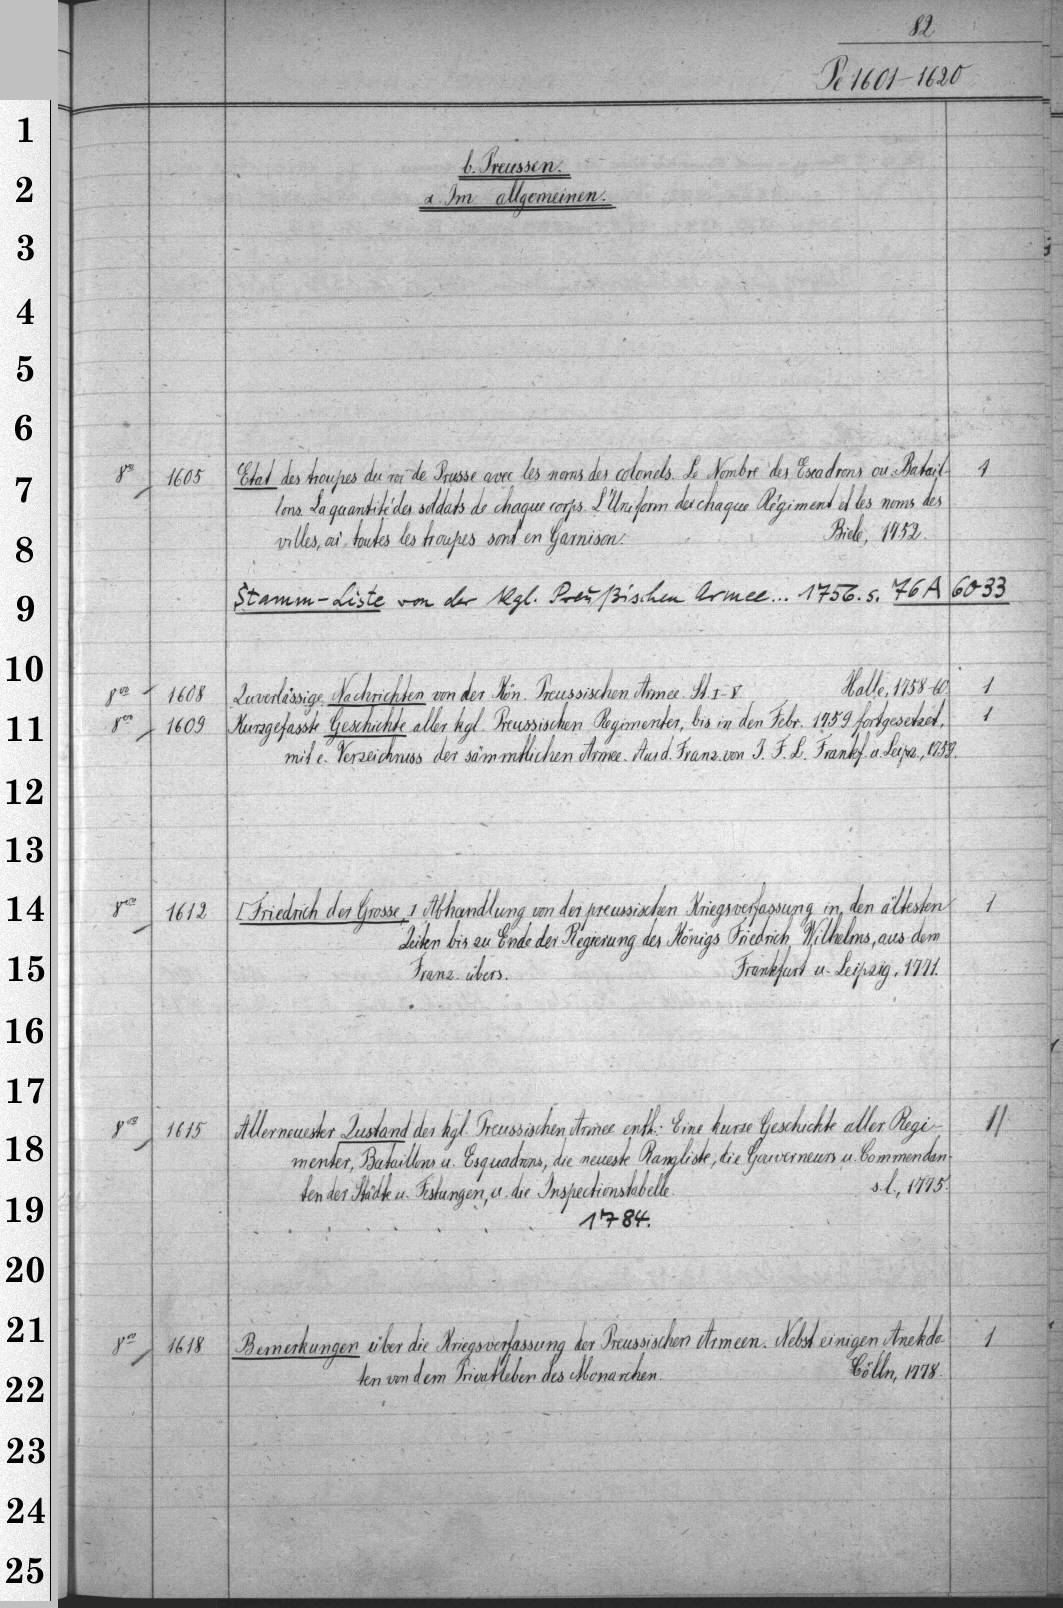 82
Pe 1601-1620
b. Preussen.
α. Im allgemeinen.
8vo 1605 Etat des troupes du roi de Prusse avec les noms des colonels. Le Nombre des Escadrons ou Batail- 1
lons. La quantité des soldats de chaque corps. L'Uniform de chaque Régiment et les noms des
villes, où toutes les troupes sont en Garnison. Biele, 1752.
Stamm-Liste von der Kgl. Preußischen Armee... 1756. s. 76 A 6033
8vo 1608 Zuverlässige Nachrichten von der Kön. Preussischen Armee. St. I-V. Halle, 1758-60. 1
8vo 1609 Kurzgefasste Geschichte aller kgl. Preussischen Regimenter, bis in den Febr. 1759 fortgesetzt, 1
mit e. Verzeichniss der sämmtlichen Armee. Aus d. Franz. von I. F. L. Frankf. u. Leipz., 1759.
8vo 1612 [Friedrich der Grosse,] Abhandlung von der preussischen Kriegsverfassung in den ältesten 1
Zeiten bis zu Ende der Regierung des Königs Friedrich Wilhelms, aus dem
Franz. übers. Frankfurt u. Leipzig, 1771.
8vo 1615 Allerneuester Zustand der kgl. Preussischen Armee enth.: Eine kurze Geschichte aller Regi- 1/
menter, Bataillons u. Esquadrons, die neueste Rangliste, die Gouverneurs u. Commendan-
ten der Städte u. Festungen, u. die Inspectionstabelle. s. l., 1775.
1784.
8vo 1618 Bemerkungen über die Kriegsverfassung der Preussischen Armeen. Nebst einigen Anekdo- 1
ten von dem Privatleben des Monarchen. Cölln, 1778.
1
2
3
4
5
6
7
8
9
10
11
12
13
14
15
16
17
18
19
20
21
22
23
24
25